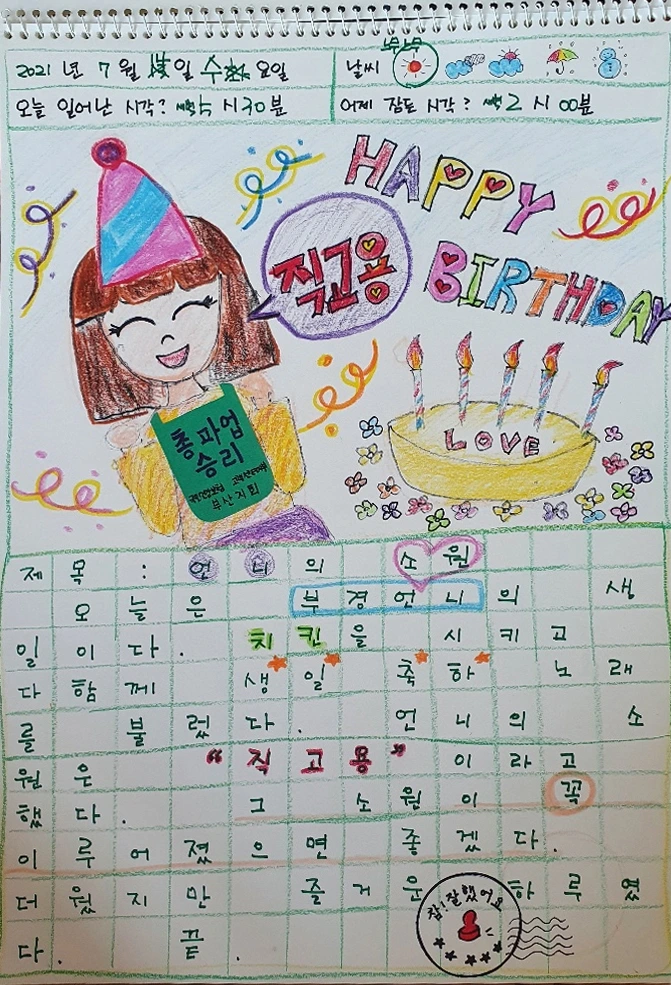 2021 년 7 월 일 수 요일
날씨
오늘 일어난 시각? 시 30 분
어제 잠든 시각? 2 시 00 분
HAPPY
BIRTHDAY
직고용
LOVE
총파업
승리
부산지회
제목: 언니의 소원
오늘은 부경언니의 생
일이다. 치킨을 시키고
다함께 생일 축하 노래
를 불렀다. 언니의 소
원은 "직고용"이라고
했다. 그 소원이 꼭
이루어졌으면 좋겠다.
더웠지만 즐거운 하루였
다. 끝.
참!잘했어요